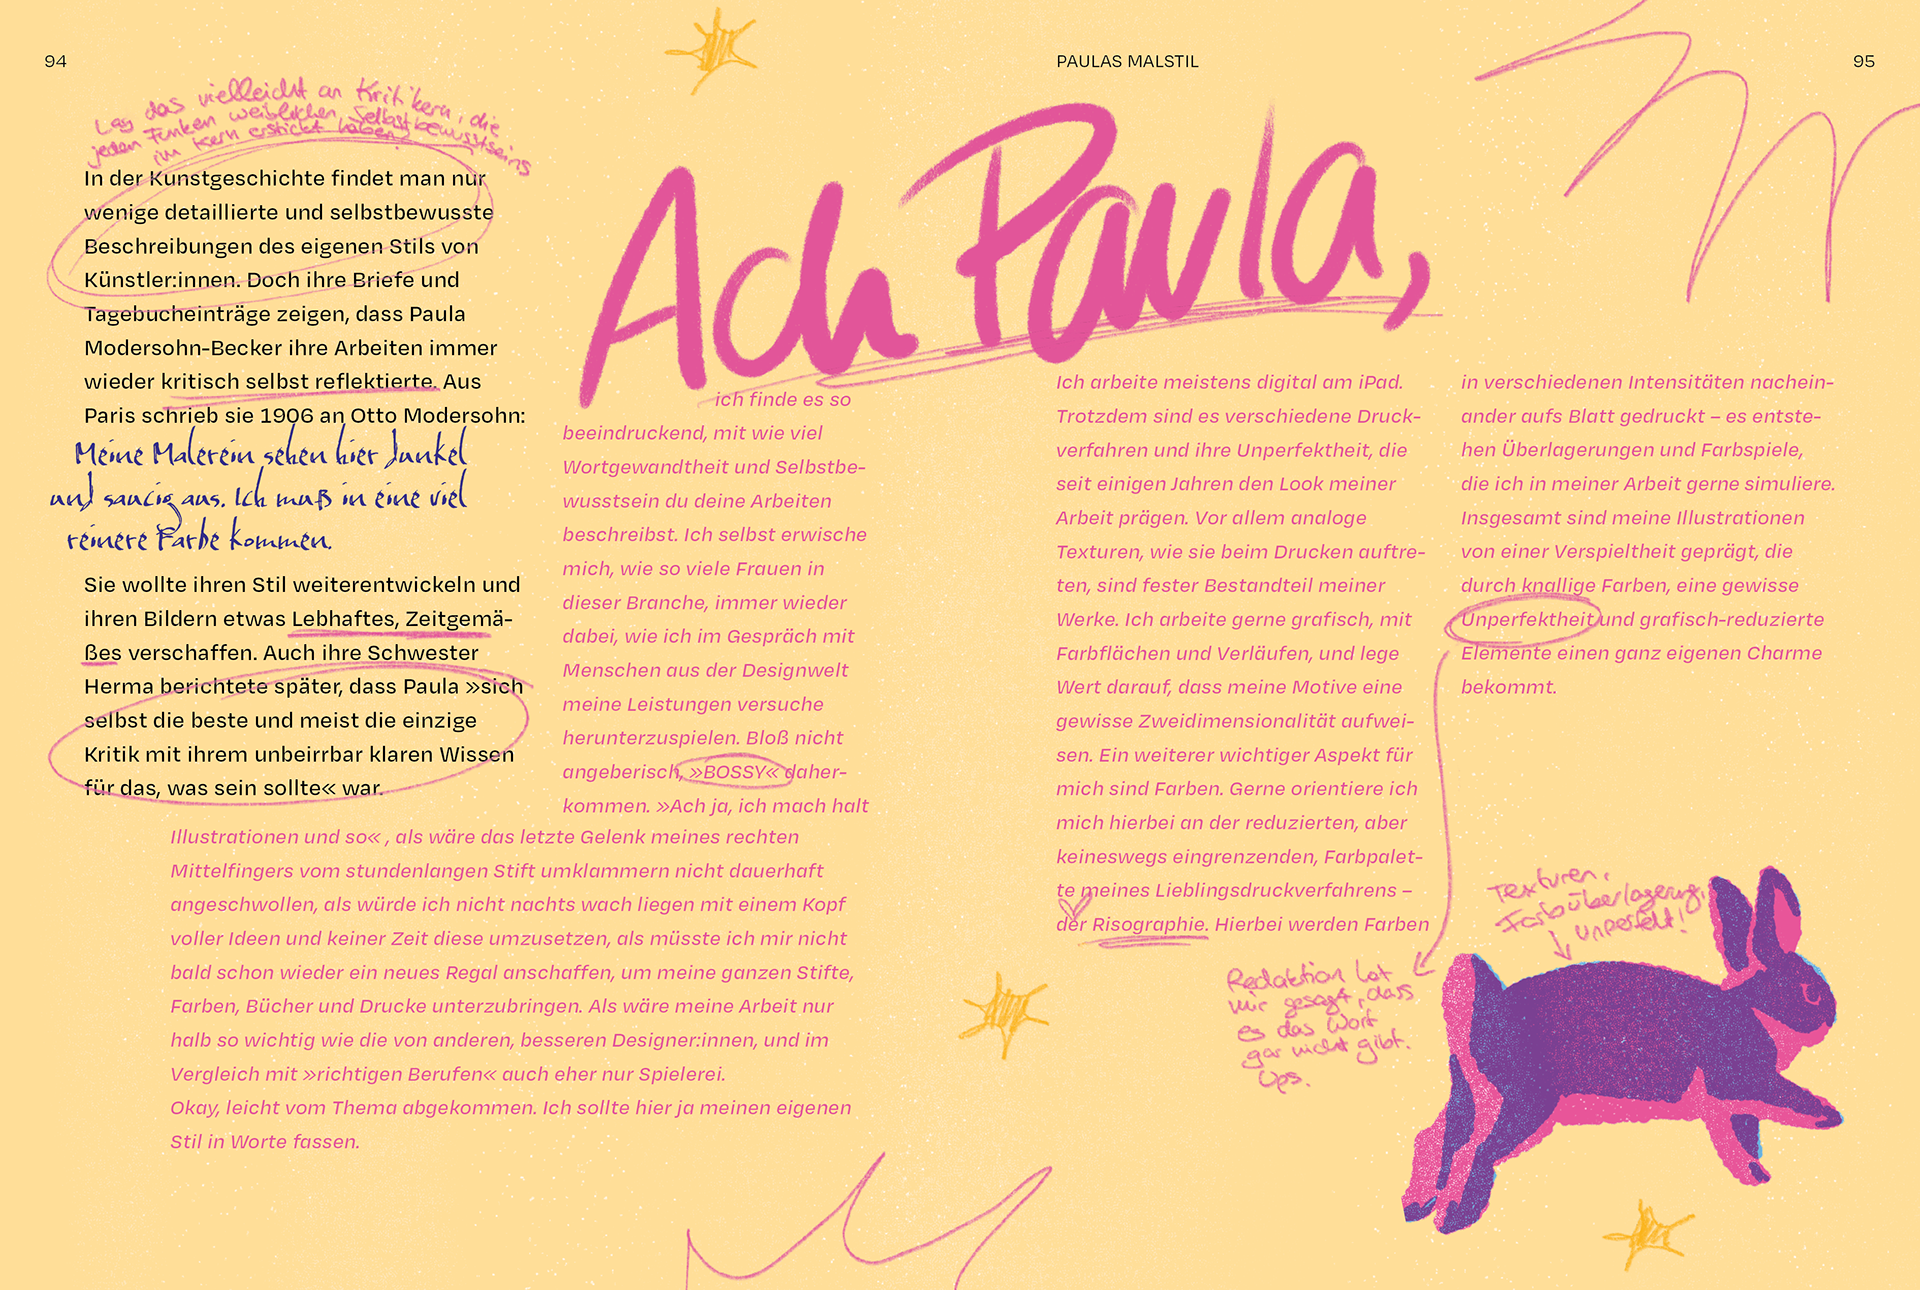 94
Lag das vielleicht an Kritikern, die
jeden Funken weiblichen Selbstbewusstseins
im Kern erstickt haben?
In der Kunstgeschichte findet man nur
wenige detaillierte und selbstbewusste
Beschreibungen des eigenen Stils von
Künstler:innen. Doch ihre Briefe und
Tagebucheinträge zeigen, dass Paula
Modersohn-Becker ihre Arbeiten immer
wieder kritisch selbst reflektierte. Aus
Paris schrieb sie 1906 an Otto Modersohn:
Meine Malerein sehen hier dunkel
und saucig aus. Ich muß in eine viel
reinere Farbe kommen.
Sie wollte ihren Stil weiterentwickeln und
ihren Bildern etwas Lebhaftes, Zeitgemä-
ßes verschaffen. Auch ihre Schwester
Herma berichtete später, dass Paula »sich
selbst die beste und meist die einzige
Kritik mit ihrem unbeirrbar klaren Wissen
für das, was sein sollte« war.
Ach Paula,
ich finde es so
beeindruckend, mit wie viel
Wortgewandtheit und Selbstbe-
wusstsein du deine Arbeiten
beschreibst. Ich selbst erwische
mich, wie so viele Frauen in
dieser Branche, immer wieder
dabei, wie ich im Gespräch mit
Menschen aus der Designwelt
meine Leistungen versuche
herunterzuspielen. Bloß nicht
angeberisch, »BOSSY« daher-
kommen. »Ach ja, ich mach halt
Illustrationen und so« , als wäre das letzte Gelenk meines rechten
Mittelfingers vom stundenlangen Stift umklammern nicht dauerhaft
angeschwollen, als würde ich nicht nachts wach liegen mit einem Kopf
voller Ideen und keiner Zeit diese umzusetzen, als müsste ich mir nicht
bald schon wieder ein neues Regal anschaffen, um meine ganzen Stifte,
Farben, Bücher und Drucke unterzubringen. Als wäre meine Arbeit nur
halb so wichtig wie die von anderen, besseren Designer:innen, und im
Vergleich mit »richtigen Berufen« auch eher nur Spielerei.
Okay, leicht vom Thema abgekommen. Ich sollte hier ja meinen eigenen
Stil in Worte fassen.
PAULAS MALSTIL
95
Ich arbeite meistens digital am iPad.
Trotzdem sind es verschiedene Druck-
verfahren und ihre Unperfektheit, die
seit einigen Jahren den Look meiner
Arbeit prägen. Vor allem analoge
Texturen, wie sie beim Drucken auftre-
ten, sind fester Bestandteil meiner
Werke. Ich arbeite gerne grafisch, mit
Farbflächen und Verläufen, und lege
Wert darauf, dass meine Motive eine
gewisse Zweidimensionalität aufwei-
sen. Ein weiterer wichtiger Aspekt für
mich sind Farben. Gerne orientiere ich
mich hierbei an der reduzierten, aber
keineswegs eingrenzenden, Farbpalet-
te meines Lieblingsdruckverfahrens –
der Risographie. Hierbei werden Farben
in verschiedenen Intensitäten nachein-
ander aufs Blatt gedruckt – es entste-
hen Überlagerungen und Farbspiele,
die ich in meiner Arbeit gerne simuliere.
Insgesamt sind meine Illustrationen
von einer Verspieltheit geprägt, die
durch knallige Farben, eine gewisse
Unperfektheit und grafisch-reduzierte
Elemente einen ganz eigenen Charme
bekommt.
Redaktion hat
mir gesagt, dass
es das Wort
gar nicht gibt.
Ups.
Texturen,
Farbüberlagerung,
unperfekt!